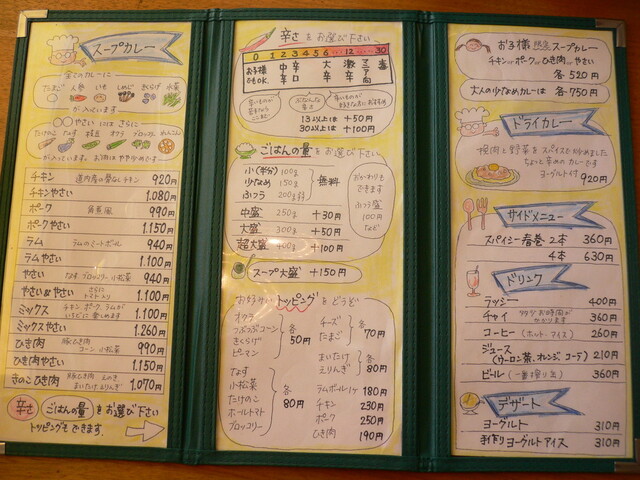 スープカレー
全てのカレーに
たまご 人参 いも しめじ きくらげ 水菜
が入っています
〇〇やさい にはさらに
たけのこ なす 枝豆 オクラ ブロッコリー れんこん
が入っています。お肉はやや少なめです
チキン 道内産の骨なしチキン 920円
チキンやさい 1.080
ポーク 角煮風 990円
ポークやさい 1.150
ラム ラムのミートボール 940円
ラムやさい 1.100
やさい なす、ブロッコリー、小松菜 940円
やさい&やさい さらにトマト入り 1.100円
ミックス チキン、ポーク、ラムがいちどに楽しめます 1.100円
ミックスやさい 1.260円
ひき肉 豚ひき肉 コーン 小松菜 990円
ひき肉やさい 1.150円
きのこひき肉 豚ひき肉 えのき まいたけ えりんぎ 1.070円
辛さ ごはんの量 をお選び下さい
トッピングもできます。
辛さをお選び下さい
0 1 2 3 4 5 6 … 12 … 30
お子様でもOK.
中辛
辛口
大辛
激辛
マニア向
13以上は +50円
30以上は +100円
ごはんの量をお選び下さい
小(半分) 100g
少なめ 150g
ふつう 200g
無料
おかわりもできます
ふつう盛 100円
など
中盛 250g +30円
大盛 300g +50円
超大盛 400g +100円
スープ大盛 +150円
お好みでトッピングをどうぞ
オクラ
つぶつぶコーン
きくらげ
ピーマン
各50円
チーズ
たまご
各70円
まいたけ
えりんぎ
各80円
なす
小松菜
たけのこ
ホールトマト
ブロッコリー
各80円
ラムボール1ヶ 180円
チキン 230円
ポーク 250円
ひき肉 190円
お子様 スープカレー
チキンorポークorひき肉orやさい
各520円
大人の少なめカレーは 各750円
ドライカレー
挽肉と野菜をスパイスで炒めました
ちょっと辛めのカレーです
ヨーグルト付 920円
サイドメニュー
スパイシー春巻 2本 360円
4本 630円
ドリンク
ラッシー 400円
チャイ 少々お時間がかかります 360円
コーヒー (ホット・アイス) 260円
ジュース (ウーロン茶、オレンジ、コーラ) 210円
ビール (一番搾り缶) 360円
デザート
ヨーグルト 310円
手作りヨーグルトアイス 310円